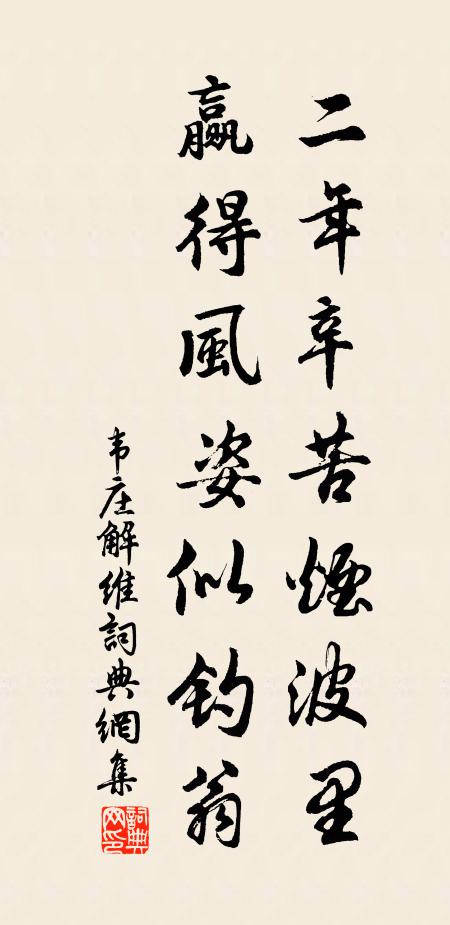 二年辛苦煙波里
贏得風姿似釣翁
韦庄解维詞典網集
詞典網印